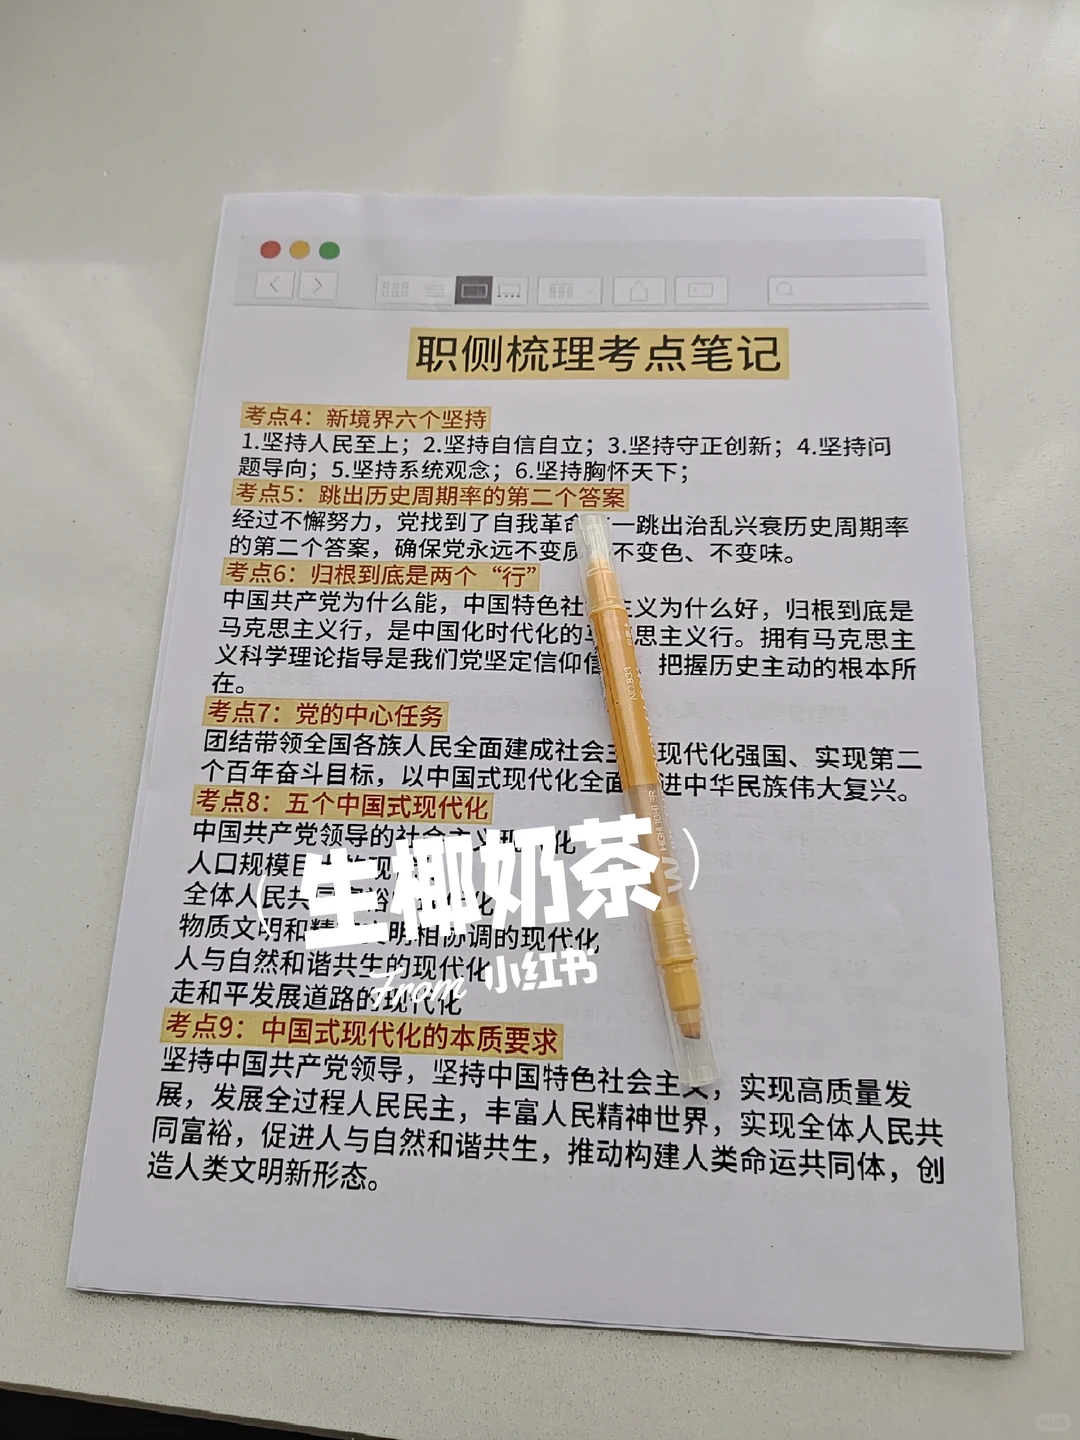 职侧梳理考点笔记
考点4：新境界六个坚持
1.坚持人民至上；2.坚持自信自立；3.坚持守正创新；4.坚持问
题导向；5.坚持系统观念；6.坚持胸怀天下；
考点5：跳出历史周期率的第二个答案
经过不懈努力，党找到了自我革命 一跳出治乱兴衰历史周期率
的第二个答案，确保党永远不变质 不变色、不变味。
考点6：归根到底是两个“行”
中国共产党为什么能，中国特色社 主义为什么好，归根到底是
马克思主义行，是中国化时代化的马 思主义行。拥有马克思主
义科学理论指导是我们党坚定信仰信 把握历史主动的根本所
在。
考点7：党的中心任务
团结带领全国各族人民全面建成社会主 现代化强国、实现第二
个百年奋斗目标，以中国式现代化全面 进中华民族伟大复兴。
考点8：五个中国式现代化
中国共产党领导的社会主义现代化
人口规模 的现
全体人民共同富裕 化
物质文明和精 文明相协调的现代化
人与自然和谐共生的现代化
走和平发展道路的现代化
（生椰奶茶）
From 小红书
考点9：中国式现代化的本质要求
坚持中国共产党领导，坚持中国特色社会主义，实现高质量发
展，发展全过程人民民主，丰富人民精神世界，实现全体人民共
同富裕，促进人与自然和谐共生，推动构建人类命运共同体，创
造人类文明新形态。
NO.833
HIGHLIGHTER